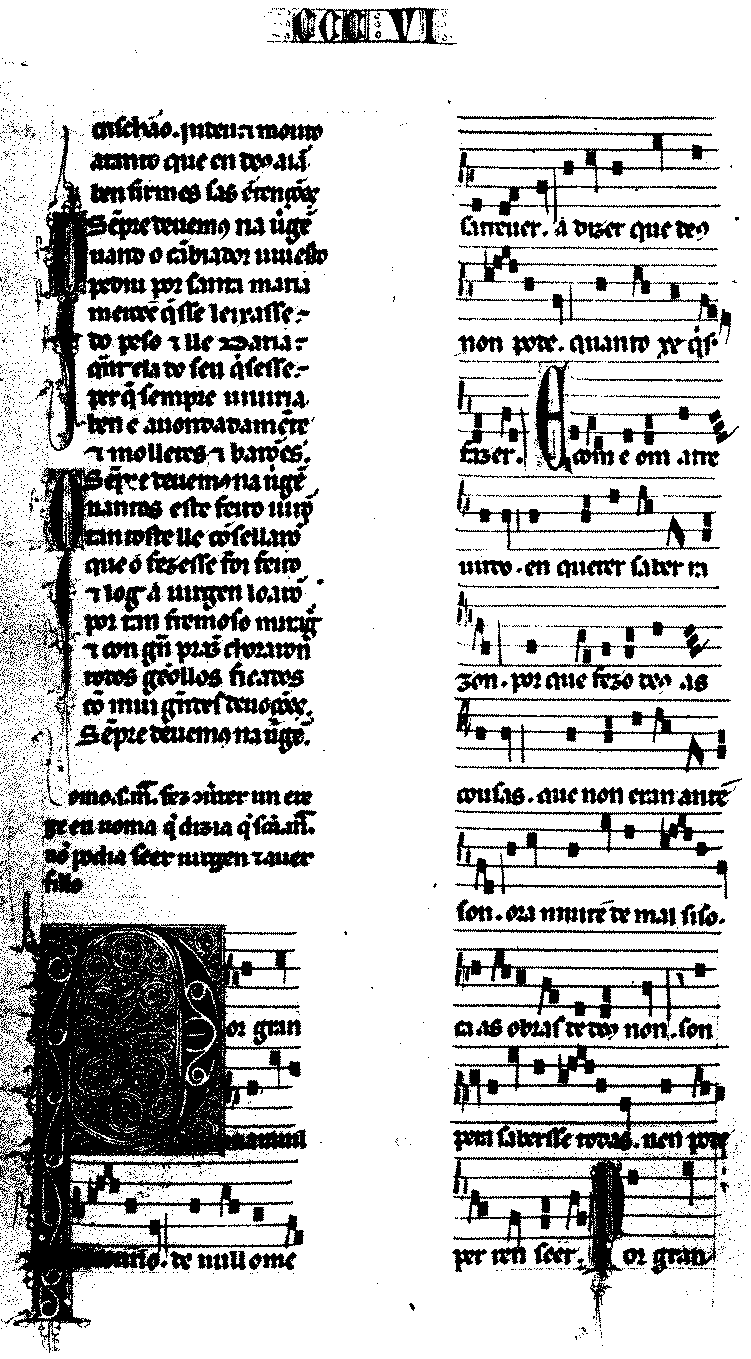 CCCVI
crischão. punturamonto
atanto que en
ben firmes sas
Sẽpre deuemos na uirgẽ
uando o cãbiador uiu esto
pediu por santa maria
mercee q̃ sse leixasse.
do peso
q̃ tẽla do seu q̃sesse.
per q̃ sempre uiuiria
ben e auondadamẽte
⁊ molleres ⁊ barões.
Sẽpre deuemos na uirgẽ
uantos este feito uirõ
tantoste lle cõsellarõ
que o fezesse foi feito
⁊ log a uirgen loarõ
por tan fremoso miragr̃
⁊ con grã praz̃ choraron
todos geollos ficados
cõ mui grãdes deuoções.
Sẽpre deuemos na uirgẽ.
omo. s. m̃. fez conuerter un ere
ge en roma q̃ dizia q̃ scã m̃.
nõ podia seer uirgen ⁊ auer
fillo
or gran
marauill
de null ome
s'atreuer. a dizer que deus
non pode. quanto xe q̃ s.
fazer. E com e om atre
uudo. en querer saber ra
zon. por que fezo deus as
cousas. que non eran ante
son. ora mure de mal siso.
ca as obras de deus non. son
pera saberse todas. nen pode
per ren seer. Por gran